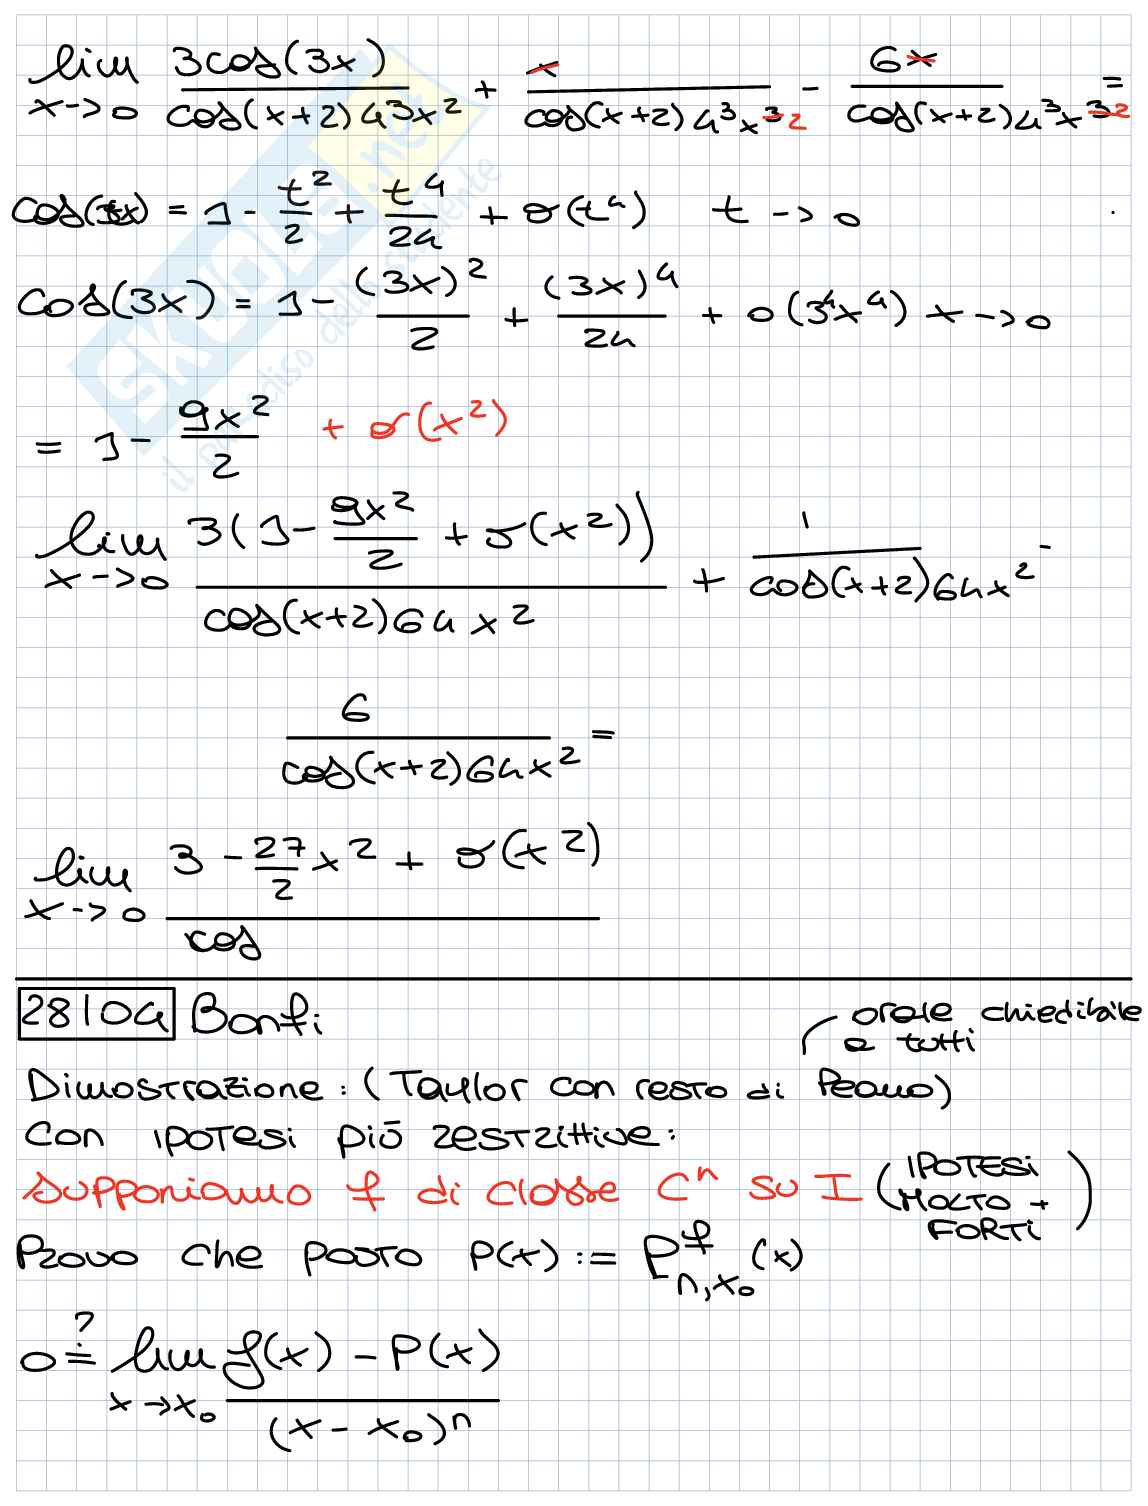 lim x->0 3cos(3x)/(cos(x+2)4³x²) + x/(cos(x+2)4³x³ ²) - 6x/(cos(x+2)4³x³ ²) =
= 1 - t²/2 + t⁴/24 + o(t⁴) t -> 0
cos(3x) = 1 - (3x)²/2 + (3x)⁴/24 + o(3⁴x⁴) x -> 0
= 1 - 9x²/2 + o(x²)
lim x->0 3(1 - 9x²/2 + o(x²))/(cos(x+2)64x²) + 1/(cos(x+2)64x²) -
6/(cos(x+2)64x²) =
lim x->0 (3 - 27/2 x² + o(x²))/cos
28104 Bonfi
orale chiedibile
a tutti
Dimostrazione: (Taylor con resto di Peano)
Con ipotesi più restrittive:
Supponiamo f di classe Cⁿ su I (IPOTESI
MOLTO +
FORTI)
Provo che posto P(x) := P^f_{n,x₀}(x)
0 =? lim x→x₀ (f(x) - P(x))/(x - x₀)ⁿ
SKUOLA.net
il paradiso dello studente